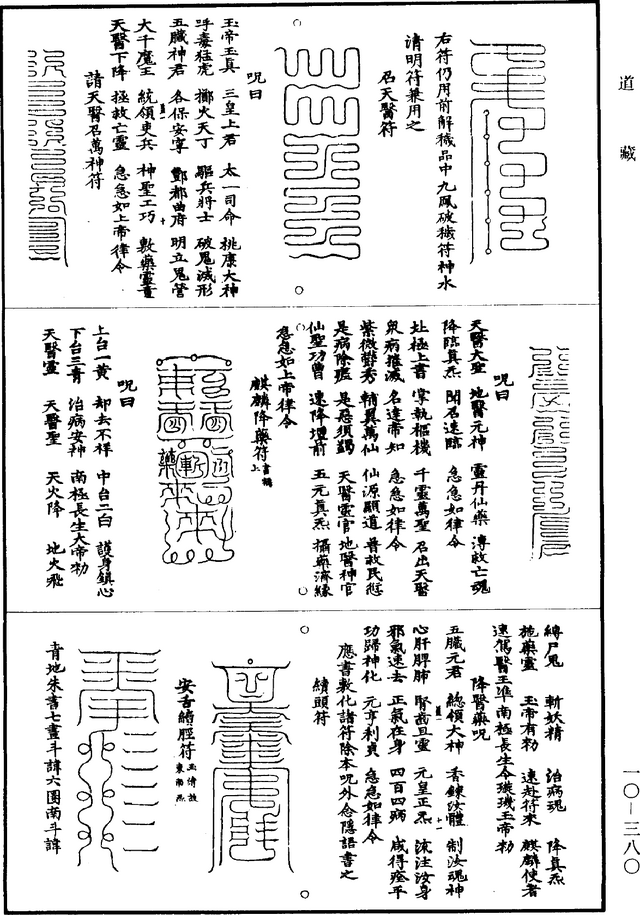 道藏
右符仍用前解穢品中九鳳破穢符神水
清明符兼用之
召天醫符
呪曰
玉帝玉真 三皇上君 太一司命 桃康大神
呼毒猛虎 擲火天丁 驅兵將士 破鬼滅形
五臟神君 各保安寧 酆都曲府 明立鬼營
大千魔王 統領吏兵 神聖工巧 敷藥靈童
天醫下降 拯救亡靈 急急如上帝律令
請天醫召萬神符
呪曰
天醫大聖 地醫元神 靈丹仙藥 溥救亡魂
降臨真炁 聞召速臨 急急如律令
北極上書 掌執樞機 千靈萬聖 召出天醫
衆病摧滅 名達帝知 急急如律令
紫微 秀 輔翼萬仙 仙源顯道 普救民愆
是病除瘥 是惡須蠲 天醫靈官 地醫神官
仙聖功曹 速降壇前 五元真炁 攝藥濟緣
急急如上帝律令
麒麟降藥符
呪曰
上台一黄 却去不祥 中台二白 護身鎮心
下台三青 治病安神 南極長生大帝勑
天醫靈 天醫聖 天火降 地火飛
縛尸鬼 斬妖精 治病魂 降真炁
施藥靈 玉帝有勑 速赴符來 麒麟使者
速駕醫王準南極長生令璇璣玉帝勑
降醫藥呪
五臟元君 總領大神 香鍊汝體 制汝魂神
心肝脾肺 腎哉且靈 元皇正炁 流注汝身
邪氣速去 正氣在身 四百四病 咸得痊平
功歸神化 元亨利貞 急急如律令
應書敷化諸符除本呪外念隱語書之
續頭符
安舌續脛符
青地朱書七畫斗諱六圈南斗諱
一〇—三八〇